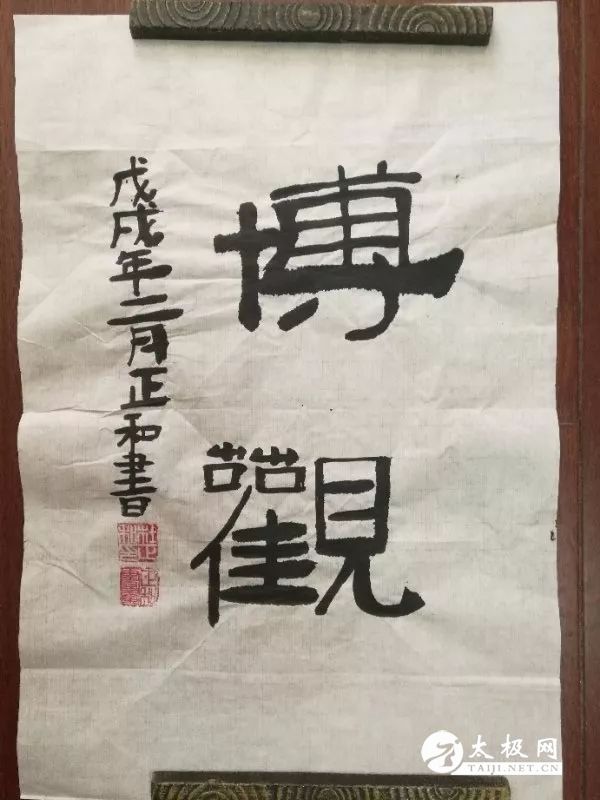 博觀
戊戌年二月正和書
太极网
TAIJI.NET.CN